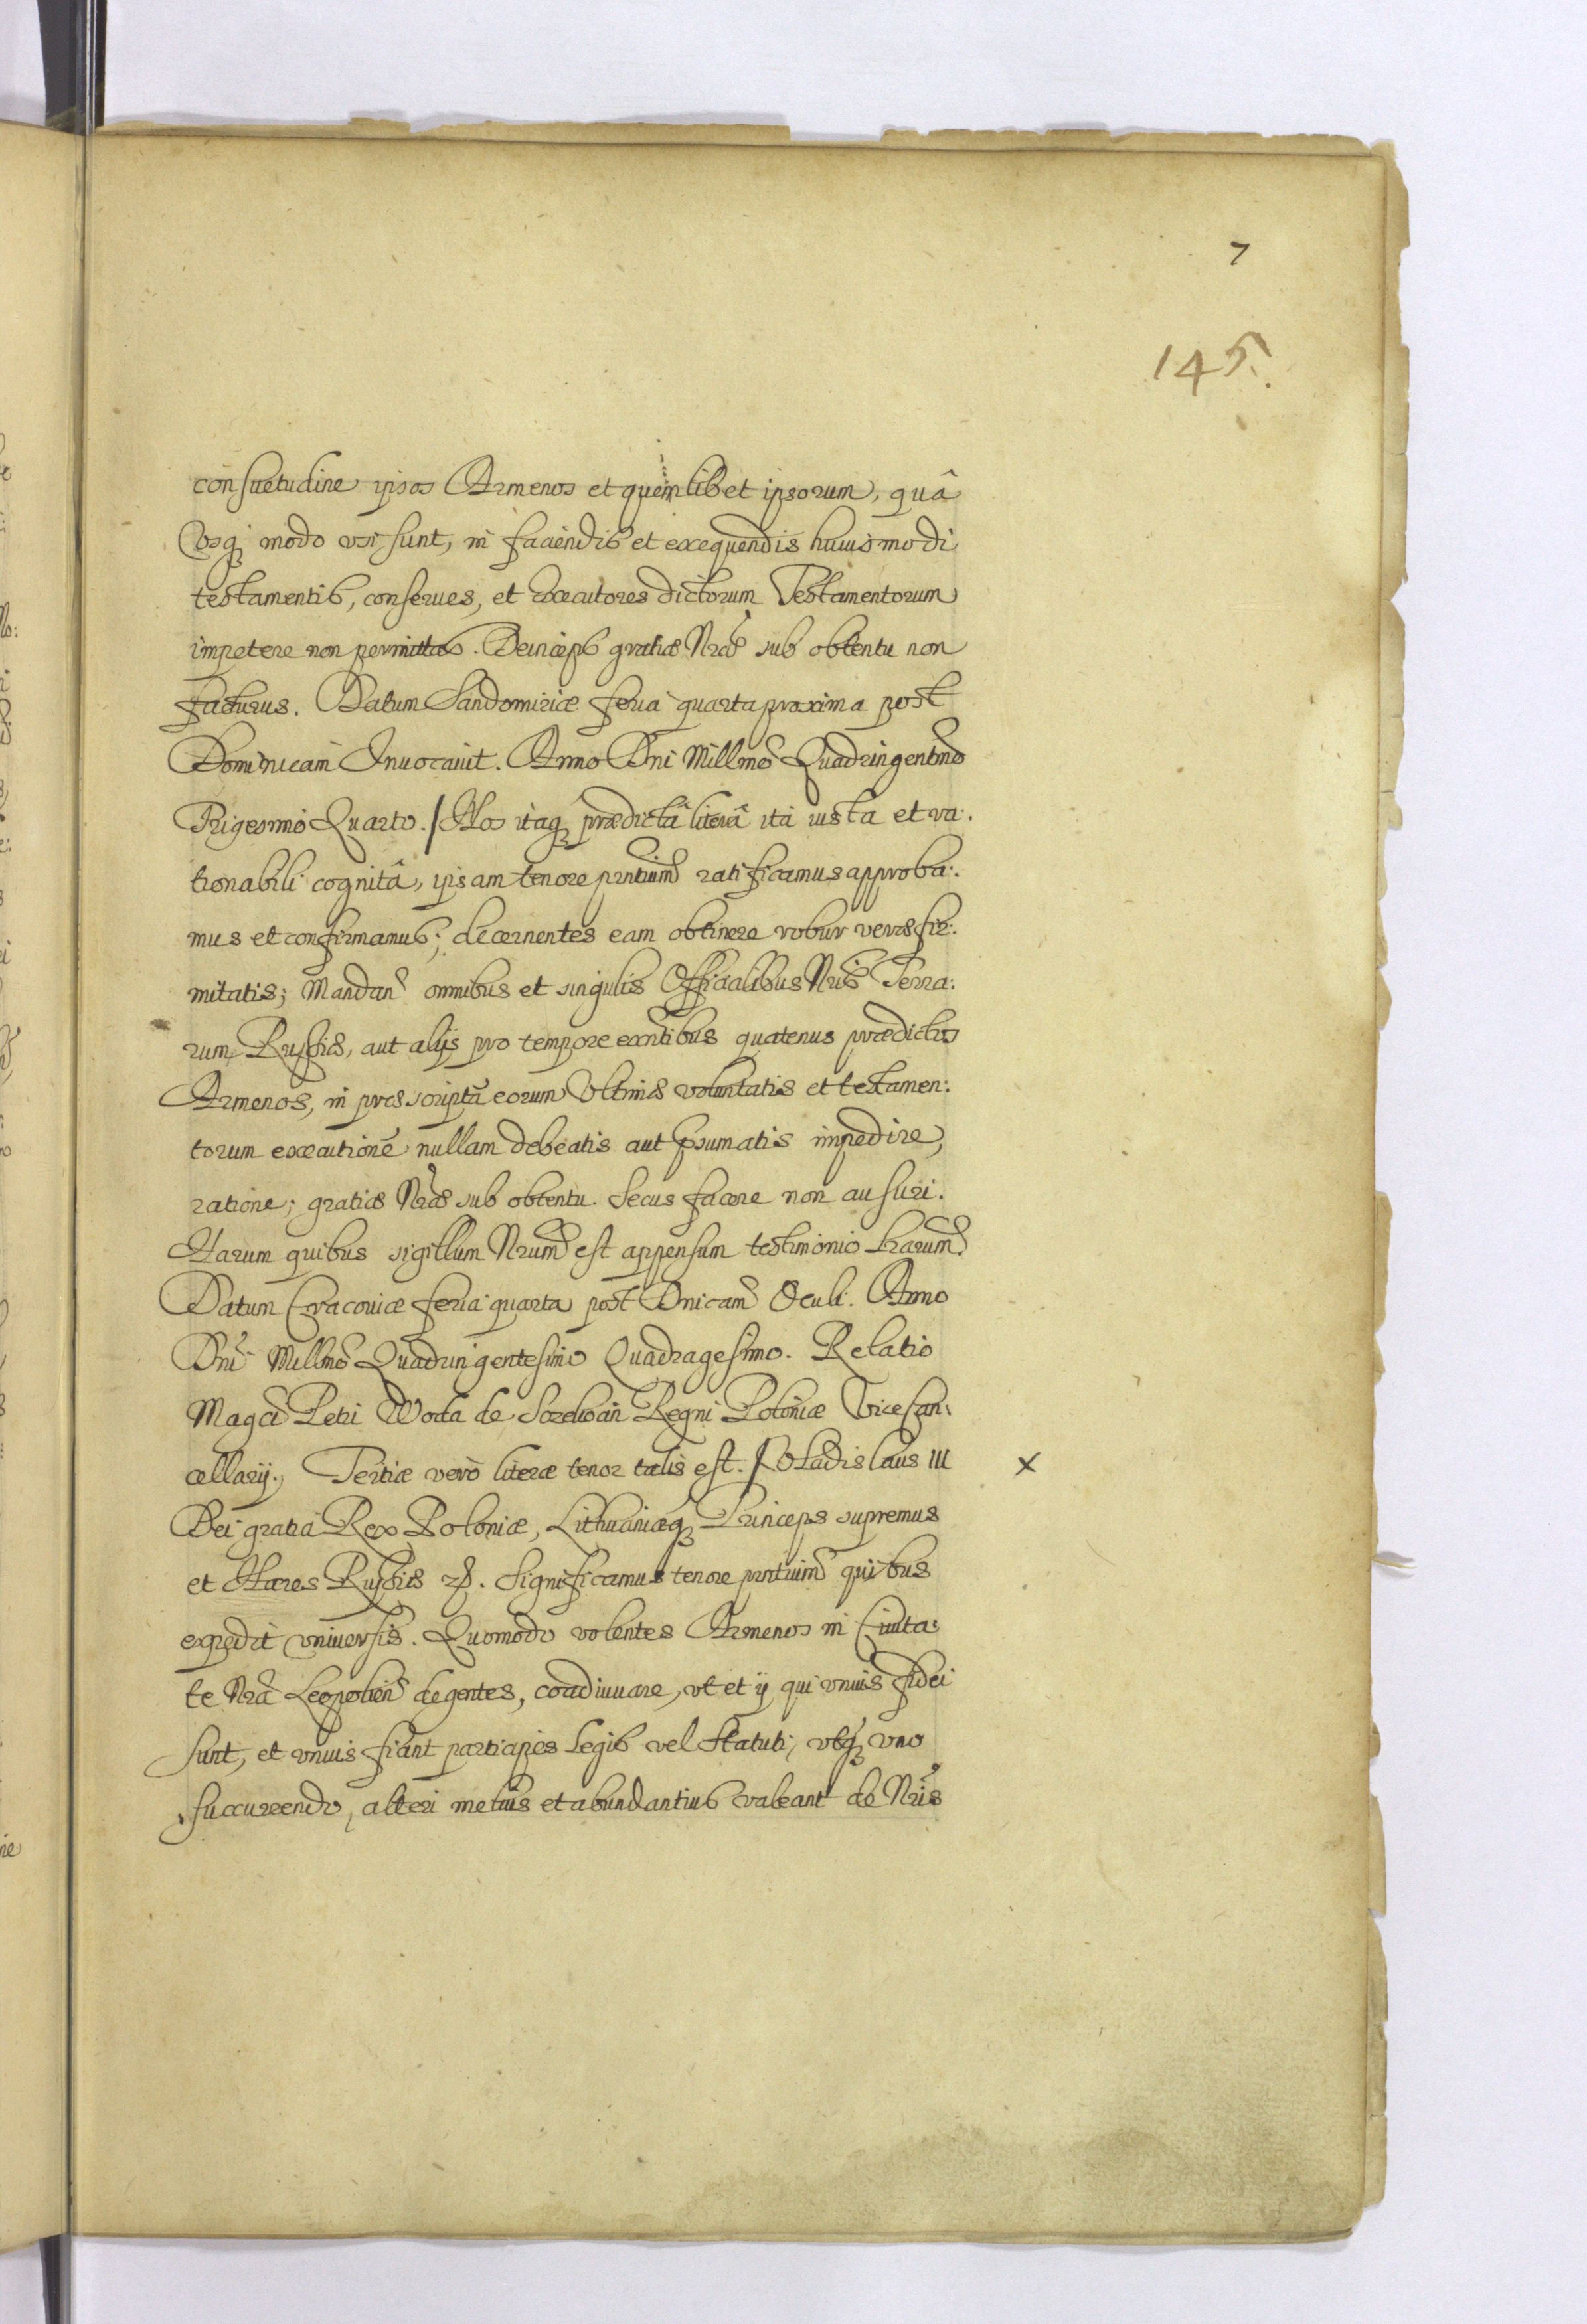 7
145.
consuetudine ipsos Armenos et quemlibet ipsorum, quâ
Vsq modo vsi sunt, in faciendis et exequendis huiusmodi
testamentis, conserues, et Executores dictorum Testamentorum
impetere non permittas. Deinceps gratiæ Nræ sub obtentu non
facturus. Datum Sandomiriæ feria quarta proxima post
Dominicam Inuocauit. Anno Dni Millmo Quadringentmo
Trigesimo Quarto. / Nos itaq prædictâ literâ ità iusta et ra:
tionabili cognitâ, ipsam tenore prntium ratificamus approba:
mus et confirmamus; decernentes eam obtinere robur veræ fir:
mitatis; Mandan omnibus et singulis Officialibus Nris Terra:
rum Russiæ, aut alijs pro tempore exntibus quatenus prædictos
Armenos, in præscriptâ eorum Vltimæ voluntatis et testamen:
torum executionē nullam debeatis aut præsumatis impedire,
ratione; gratiæ Nræ sub obtentu. Secus facere non ausuri.
Harum quibus sigillum Nrum est appensum testimonio lrarum.
Datum Cracouiæ feria quarta post Dnicam Oculi. Anno
Dni Millmo Quadringentesimo Quadragesimo. Relatio
Magci Petri Woda de Sczekoan Regni Poloniæ Vice Can:
cellarij. Tertiæ verò literæ tenor talis est. / Vladislaus III
x
Dei gratia Rex Poloniæ, Lithuaniæq Princeps supremus
et Hæres Russiæ &. Significamus tenore prntium quibus
expedit vniuersis. Quomodo volentes Armenos in Ciuita:
te Nrâ Leopolien degentes, coadiuuare, vt et ij qui vnius fidei
sunt, et vnius fiant participes Legis vel Statuti, vtq vno
succurrendo, alteri melius et abundantius valeant de Nris